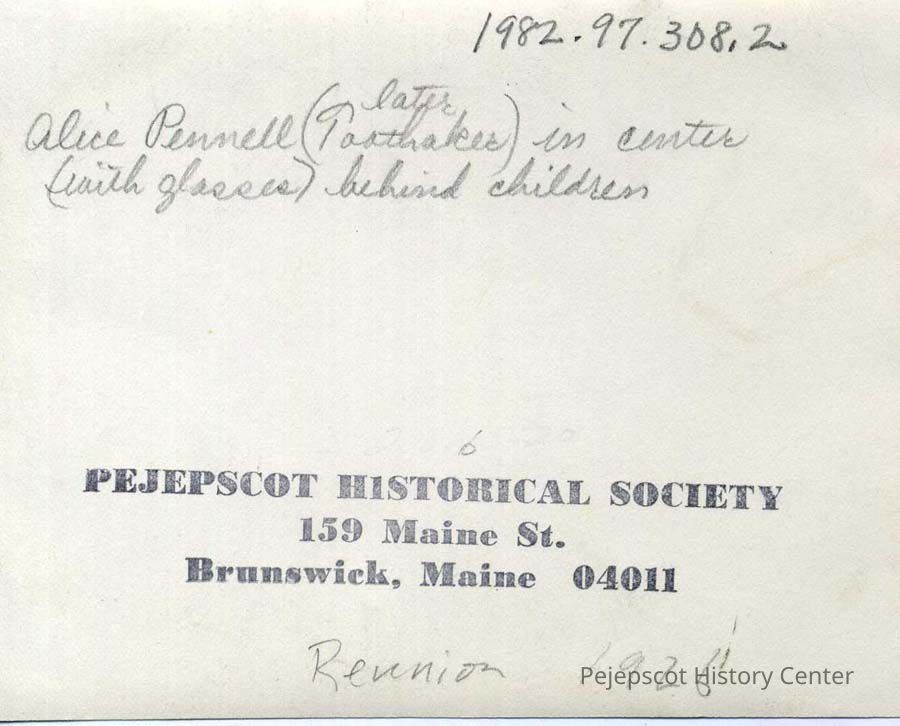 1982.97.308.2
later
Alice Pennell (Toothaker) in center
(with glasses) behind children
6
PEJEPSCOT HISTORICAL SOCIETY
159 Maine St.
Brunswick, Maine 04011
Reunion
Pejepscot History Center